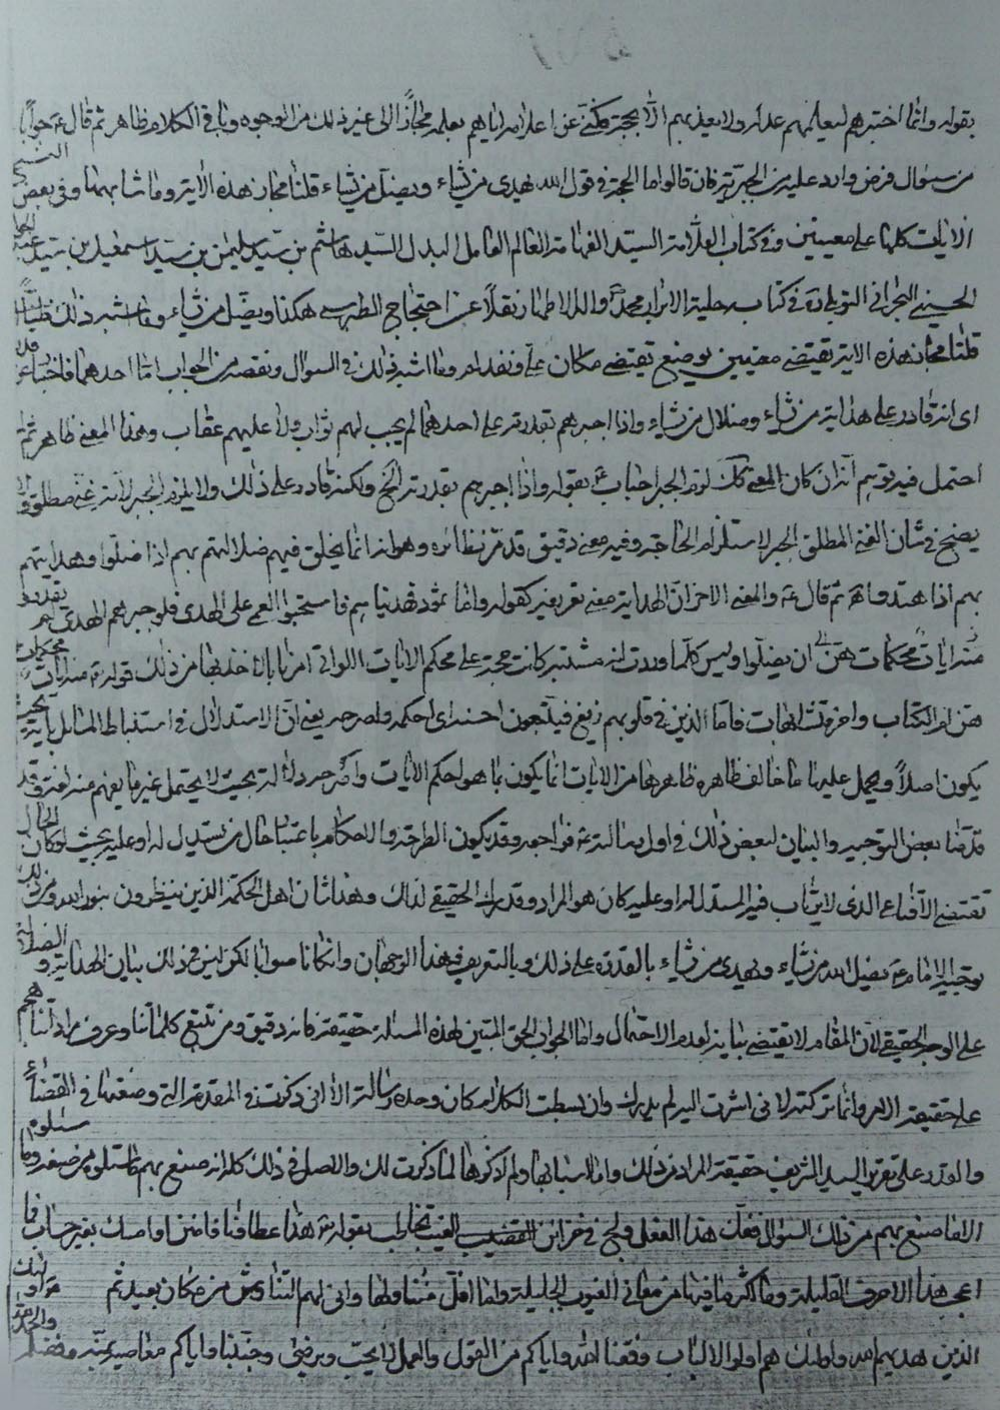 بقوله وانما اختبرهم ليعلمهم عدله ولا يعذبهم الا بحجة فكنى عن اعلامه اياهم بعلمه مجازاً الى غير ذلك من الوجوه وباقي الكلام ظاهر ثم قال ع جواباً
من سؤال فرض وارد عليه من الجبرية فان قالوا ما الحجة في قول الله يهدي من يشاء ويضل من يشاء قلنا مجاز هذه الآية وما شابهها وفي بعض النسخ
الآيات كلها على معنيين وفي كتاب العلامة السيد الفهامة العالم العامل السيد هاشم بن سيد سليمن بن سيد اسمعيل بن سيد
الحسيني البحراني التوبلي في كتاب حلية الابرار محمد وآله الاطهار نقلاً عن احتجاج الطبرسي هكذا ويضل من يشاء وما اشبه ذلك
قلنا مجاز هذه الآية يقتضي معنيين بوضع يقتضي مكان على وبعدهم وما اشبه ذلك في السؤال ونقص من الجواب اما احدهما فاخبار عن
اي انه قادر على هداية من يشاء وضلال من يشاء واذا اجبرهم بقدرته على احدهما لم يجب لهم ثواب ولا عليهم عقاب وهذا المعنى ظاهر ثم
احتمل فيه توهم انه ان كان المعنى كك لزم الجبر اجاب ع بقوله واذا اجبرهم بقدرته الخ ولكنه قادر على ذلك ولا يلزم الجبر لانه غني مطلق ولا
يصح في شأن الغني المطلق الجبر لاستلزام الحاجة وفيه معنى دقيق قد مر نظائره وهو انه انما يخلق فيهم ضلالتهم بهم اذا ضلوا وهدايتهم
بهم اذا اهتدوا ثم قال ع والمعنى الآخر ان الهداية منه تعريفه كقوله واما ثمود فهديناهم فاستحبوا العمى على الهدى فلو جبرهم على الهدى لم يقدروا
ان يضلوا وليس كلما وردت آية مشتبهة كانت حجة على محكم الآيات اللواتي امرنا بالاخذ بها من ذلك قوله منه آيات محكمات
هن ام الكتاب واخر متشابهات فاما الذين في قلوبهم زيغ فيتبعون احسنه اي احكمه واصرحه يعني ان الاستدلال في استنباط المسائل بآية
يكون اصلاً ويحمل عليها ما خالف ظاهره ظاهرها من الآيات انما يكون بما هو احكم الآيات واصرح دلالة بحيث لا يحتمل غير ما يفهم منه وقد
قدمنا بعض التوجيه والبيان لبعض ذلك في اول رسالته ع فراجعه وقد يكون الطرحة والاحكام باعتبار حال من يستدل له او عليه بحيث لو كان الحال
تقتضي الاقناعي الذي لا يرتاب فيه المستدل له او عليه كان هو المراد وقد يراد الحقيقي لذلك وهذا شأن اهل الحكمة الذين ينظرون بنور الله ومن ذلك
توجيه الامام ع يضل الله من يشاء ويهدي من يشاء بالقدرة على ذلك وبالتعريف فهذا الوجهان وان كانا صوابا لكن ليس في ذلك بيان الهداية والضلالة
على الوجه الحقيقي لان المقام لا يقتضي بيانه لعدم الاحتمال واما الجواب الحق المتين لهذه المسئلة حقيقة فانه دقيق ومن تتبع كلماتنا وعرف مراداتنا هجم
على حقيقة الامر وانما تركته لاني اشرت اليه لم يدرك وان بسطت الكلام كان وحده رسالة الا اني ذكرت في المقدمة التي وضعتها في القضاء
والقدر على تقرير السيد الشريف حقيقة المراد من ذلك واما اسبابها ولم اذكرها لما ذكرت لك والاصل في ذلك كله انه صنع بهم ما سئلوه من صنعه وما سئلوه
الا ما صنع بهم من ذلك السؤال ففك هذا القفل ولج في خزائن الغيب تخاطب بقوله هذا عطاؤنا فامنن او امسك بغير حساب فما
اعجب هذا الاحرف القليلة وما اكثر ما فيها من معاني الغيوب الجليلة وما اقل متناولها واني لهم التناوش من مكان بعيد ثم
الذين هديهم الله واولئك هم اولوا الالباب وفقنا الله واياكم من القول والعمل لما يحب ويرضى وجنبنا واياكم معاصيه بمنه وفضله